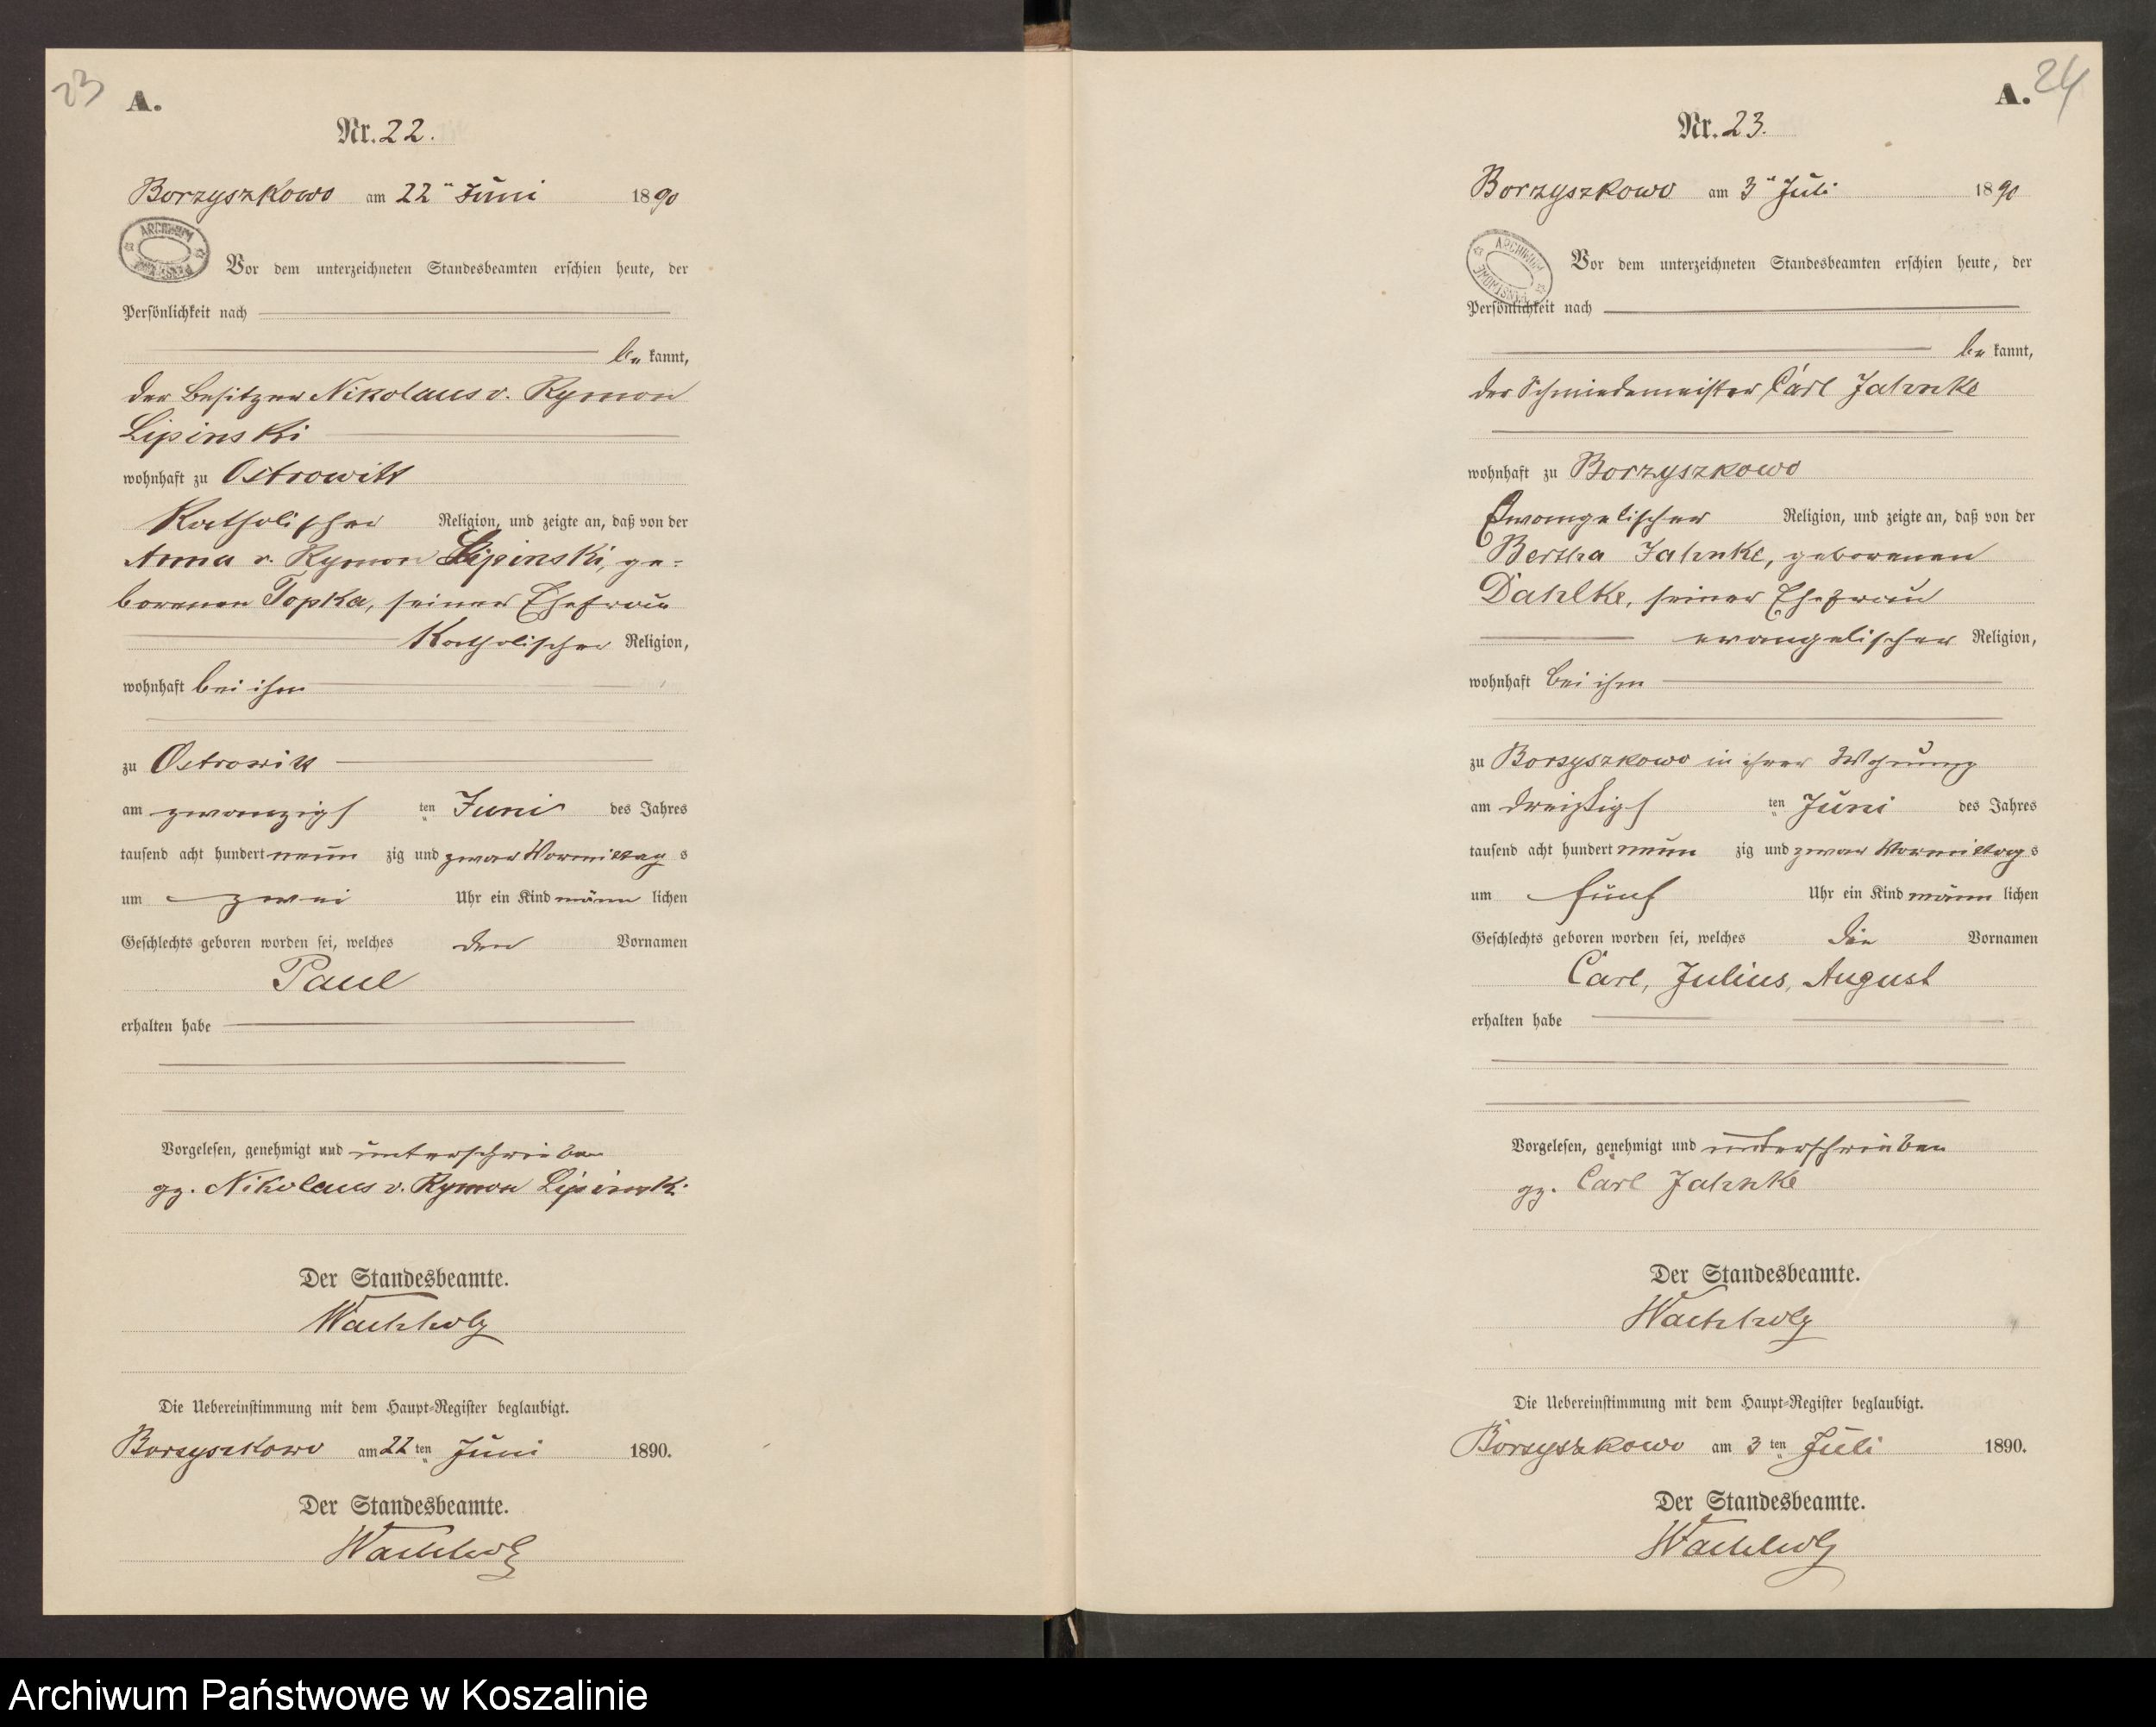 23
A.
Nr. 22.
Borzyszkowo am 22ten Juni 1890
ARCHIWUM PAŃSTWOWE
Vor dem unterzeichneten Standesbeamten erschien heute, der
Persönlichkeit nach
be kannt,
der Besitzer Nikolaus v. Rymon
Lipinski
wohnhaft zu Ostrowitt
Katholischer Religion, und zeigte an, daß von der
Anna v. Rymon Lipinski, ge=
borenen Topka, seiner Ehefrau
Katholischer Religion,
wohnhaft bei ihm
zu Ostrowitt
am zwanzigs ten Juni des Jahres
tausend acht hundert neun zig und zwar Vormittag s
um zwei Uhr ein Kind männ lichen
Geschlechts geboren worden sei, welches den Vornamen
Paul
erhalten habe
Vorgelesen, genehmigt und unterschrieben
gz. Nikolaus v. Rymon Lipinski
Der Standesbeamte.
Wachholz
Die Uebereinstimmung mit dem Haupt-Register beglaubigt.
Borzyszkowo am 22 ten Juni 1890.
Der Standesbeamte.
Wachholz
24
A.
Nr. 23.
Borzyszkowo am 3ten Juli 1890
ARCHIWUM PAŃSTWOWE
Vor dem unterzeichneten Standesbeamten erschien heute, der
Persönlichkeit nach
be kannt,
der Schmiedemeister Carl Jahnke
wohnhaft zu Borzyszkowo
Evangelischer Religion, und zeigte an, daß von der
Bertha Jahnke, geborenen
Dahlke, seiner Ehefrau
evangelischer Religion,
wohnhaft bei ihm
zu Borzyszkowo in ihrer Wohnung
am dreißigs ten Juni des Jahres
tausend acht hundert neun zig und zwar Vormittag s
um fünf Uhr ein Kind männ lichen
Geschlechts geboren worden sei, welches die Vornamen
Carl, Julius, August
erhalten habe
Vorgelesen, genehmigt und unterschrieben
gz. Carl Jahnke
Der Standesbeamte.
Wachholz
Die Uebereinstimmung mit dem Haupt-Register beglaubigt.
Borzyszkowo am 3 ten Juli 1890.
Der Standesbeamte.
Wachholz
Archiwum Państwowe w Koszalinie